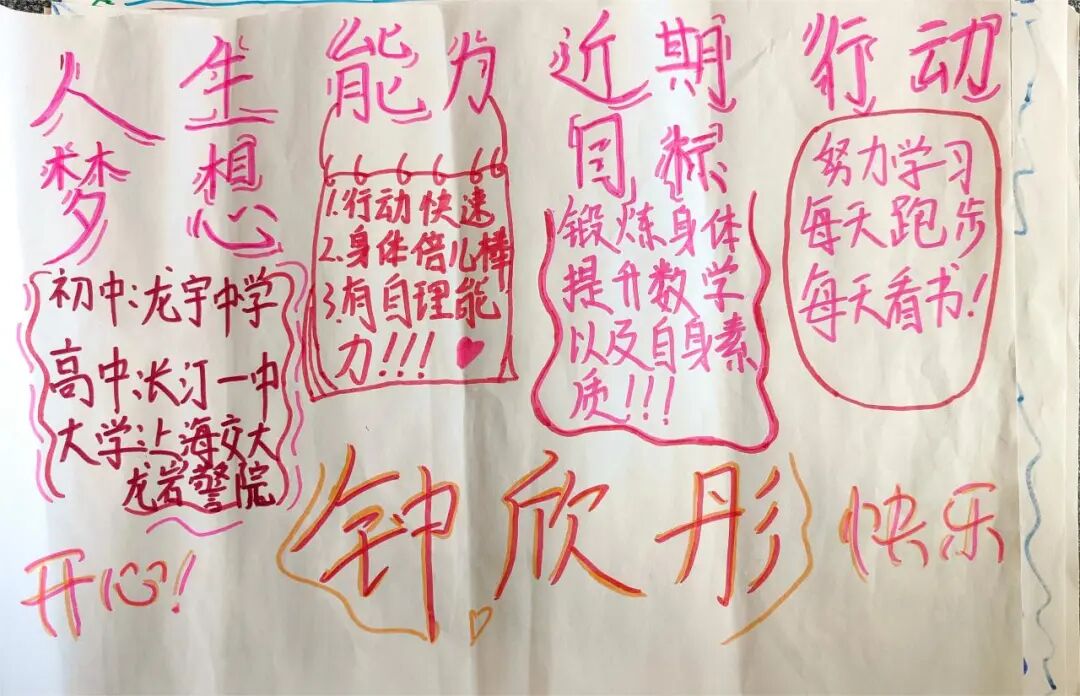 人生
梦想
初中:龙宇中学
高中:长汀一中
大学:上海交大
龙岩警院
能力
1.行动快速
2.身体倍儿棒
3.有自理能
力!!!
近期
目标
锻炼身体
提升数学
以及自身素
质!!!
行动
努力学习
每天跑步
每天看书!
开心!
钟欣彤
快乐